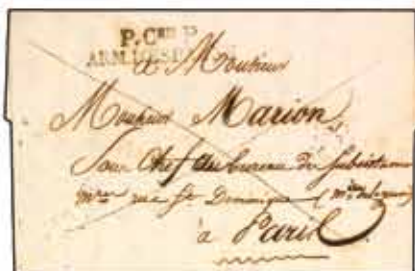 P.C
ARM.
A Monsieur
Monsieur Marion,
Sous Chef du bureau de subsistance
rue St Dominique
à Paris